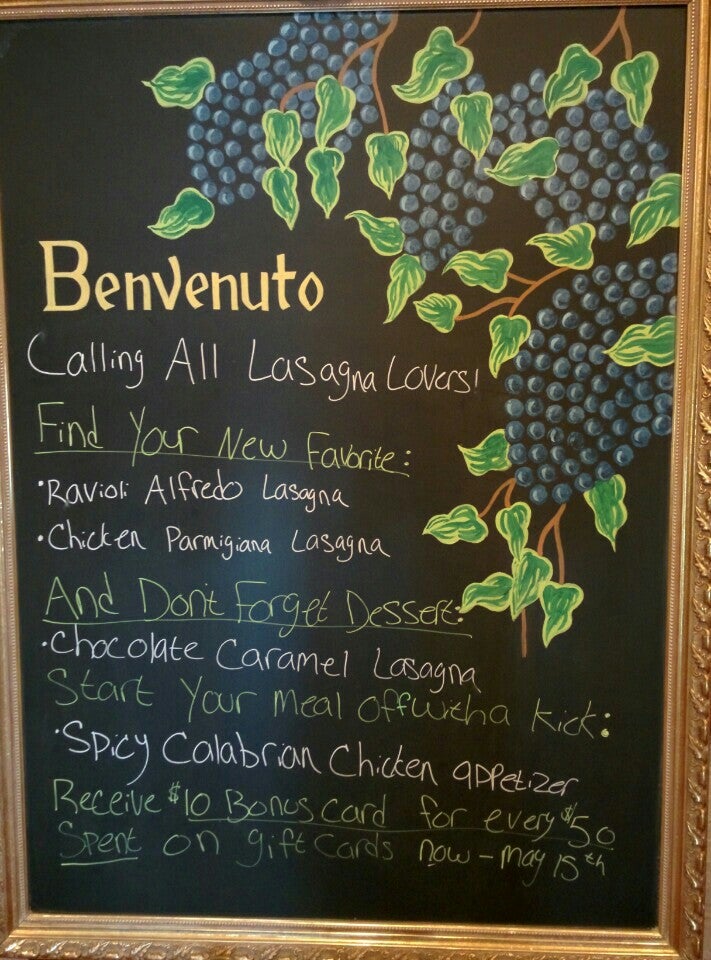 Benvenuto
Calling All Lasagna Lovers!
Find Your New Favorite:
•Ravioli Alfredo Lasagna
•Chicken Parmigiana Lasagna
And Don't Forget Dessert:
•Chocolate Caramel Lasagna
Start Your Meal off with a kick:
•Spicy Calabrian Chicken appetizer
Receive $10 Bonus card for every $50
Spent on gift cards now - may 15th